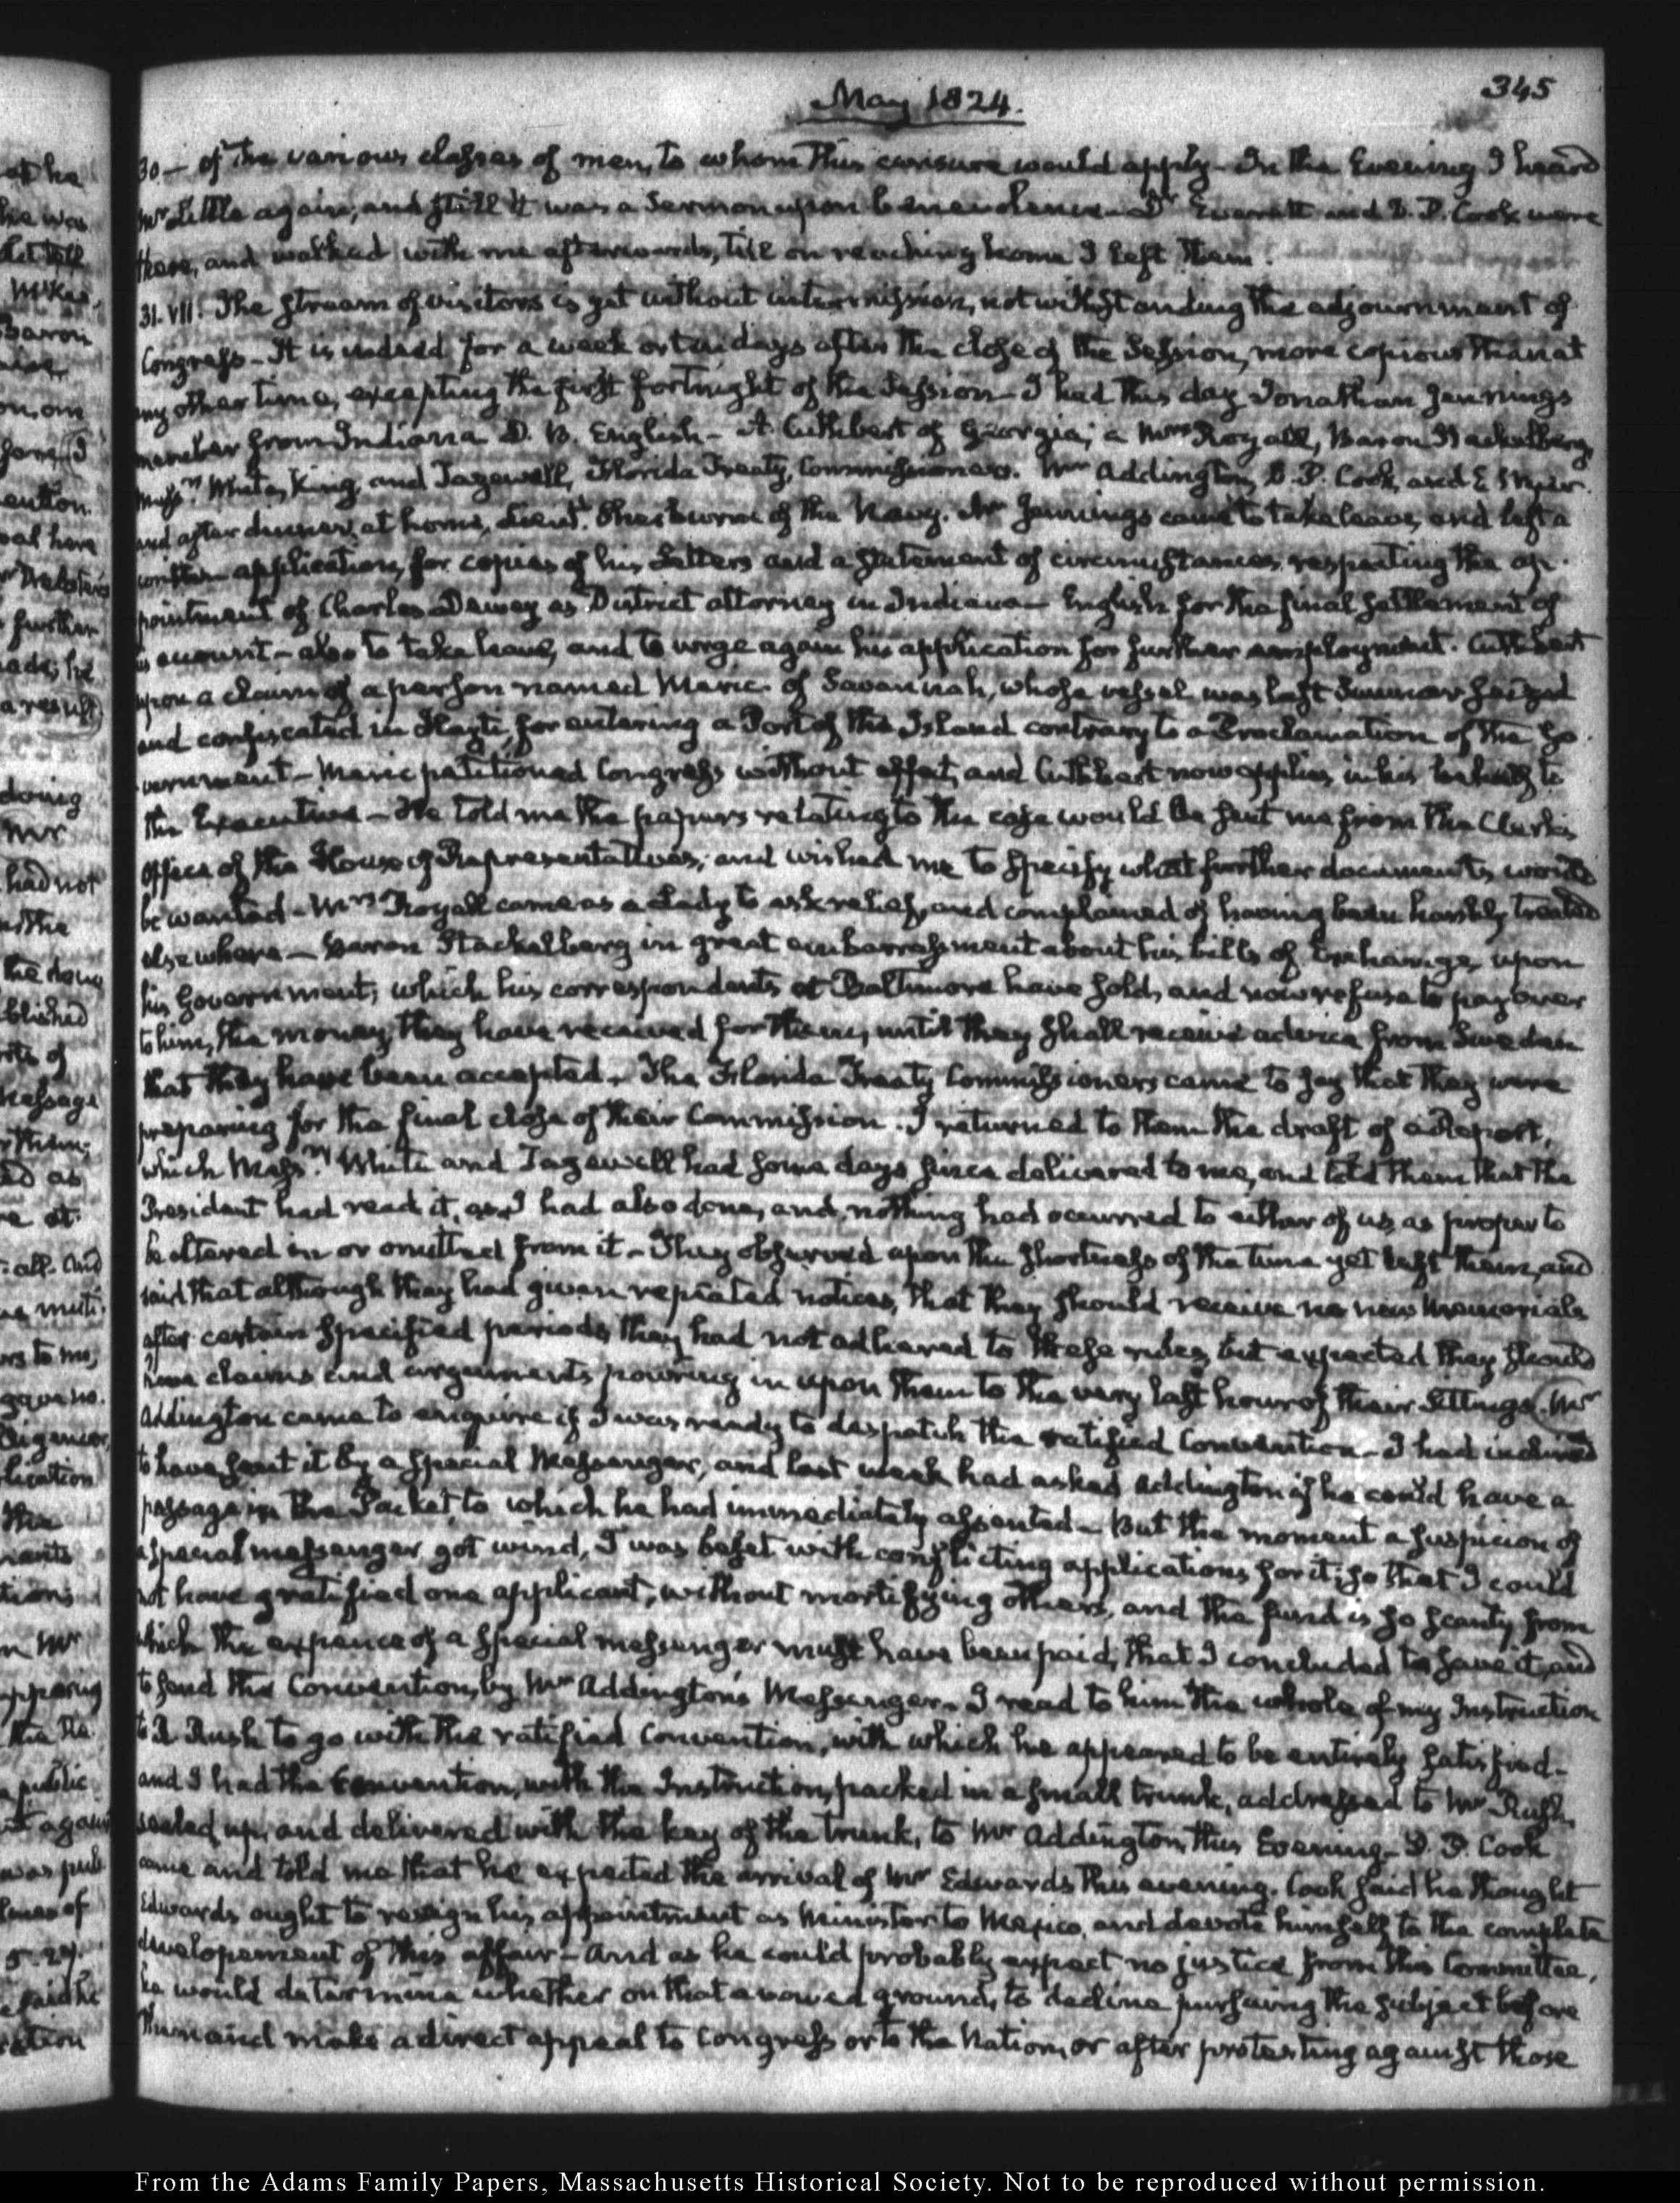 May 1824.
345
30.— of the various classes of men, to whom this censure would apply— In the Evening I heard
Mr Little again, and still it was a Sermon upon benevolence— Dr Everett and D. P. Cook were
there, and walked with me afterwards, till on reaching home I left them.
31. VII. The stream of visitors is yet without intermission, notwithstanding the adjournment of
Congress— It is indeed for a week or ten days after the close of the Session, more copious than at
any other time, excepting the first fortnight of the Session— I had this day Jonathan Jennings
member from Indiana G. B. English— A. Cuthbert of Georgia; a Mrs Royall, Baron Stackelberg,
Messrs White, King, and Tazewell, Florida Treaty Commissioners. Mr Addington, D. P. Cook, and E Wyer.
and after dinner, at home, Lieut. of the Navy. Mr Jennings came to take leave, and left a
written application, for copies of his Letters and a statement of circumstances, respecting the ap-
pointment of Charles Dewey as District attorney in Indiana— English for the final settlement of
his account— also to take leave, and to urge again his application for further employment. Cuthbert
upon a claim of a person named of Savannah, whose vessel was last Summer seized
and confiscated in Hayti, for entering a Port of the Island contrary to a Proclamation of the Go-
vernment— petitioned Congress without effect, and Cuthbert now applies, in his behalf to
the Executive— He told me the papers relating to the case would be sent me from the Clerk's
office of the House of Representatives; and wished me to specify what further documents would
be wanted— Mrs Royall came as a Lady to ask relief, and complained of having been harshly treated
elsewhere— Baron Stackelberg in great embarrassment about his bills of Exchange, upon
his Government; which his correspondents at Baltimore have sold, and now refuse to pay over
to him, the money they have received for them, until they shall receive advice from Sweden
that they have been accepted— The Florida Treaty Commissioners came to say that they were
preparing for the final close of their Commission. I returned to them the draft of a Report,
which Messrs White and Tazewell had some days since delivered to me, and told them that the
President had read it, as I had also done, and nothing had occurred to either of us, as proper to
be altered in or omitted from it— They observed upon the shortness of the time yet left them, and
said that although they had given repeated notices, that they should receive no new Memorials
after certain specified periods, they had not adhered to these rules, but expected they should
have claims and arguments pouring in upon them to the very last hour of their sittings. Mr
Addington came to enquire if I was ready to despatch the ratified Convention— I had inclined
to have sent it by a special Messenger, and last week had asked Addington if he could have a
passage in the Packet, to which he had immediately assented— But the moment a suspicion of
a special messenger got wind, I was beset with conflicting applications for it; so that I could
not have gratified one applicant, without mortifying others, and the fund is so scanty from
which the expence of a special messenger must have been paid, that I concluded to save it, and
to send the Convention, by Mr Addington's Messenger. I read to him the whole of my Instruction
to R Rush to go with the ratified Convention, with which he appeared to be entirely satisfied—
and I had the Convention, with the Instruction, packed in a small trunk, addressed to Mr Rush,
sealed up, and delivered with the key of the trunk, to Mr Addington, this Evening— D. P. Cook
came and told me that he expected the arrival of Mr Edwards this evening. Cook said he thought
Edwards ought to resign his appointment as Minister to Mexico, and devote himself to the complete
developement of this affair— And as he could probably expect no justice from this Committee,
he would determine whether on that avowed ground, to decline pursuing the subject before
them and make a direct appeal to Congress or to the Nation, or after protesting against those
From the Adams Family Papers, Massachusetts Historical Society. Not to be reproduced without permission.